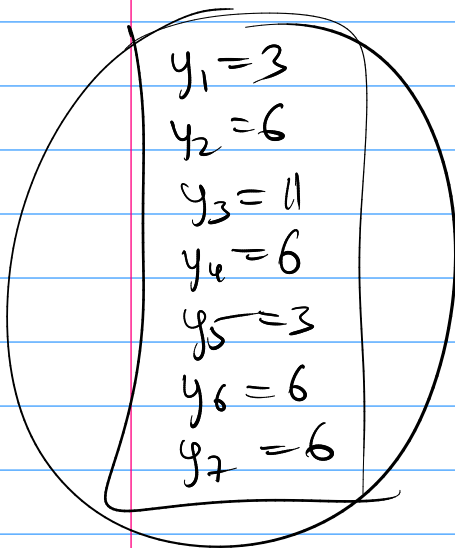 y₁ = 3
y₂ = 6
y₃ = 11
y₄ = 6
y₅ = 3
y₆ = 6
y₇ = 6